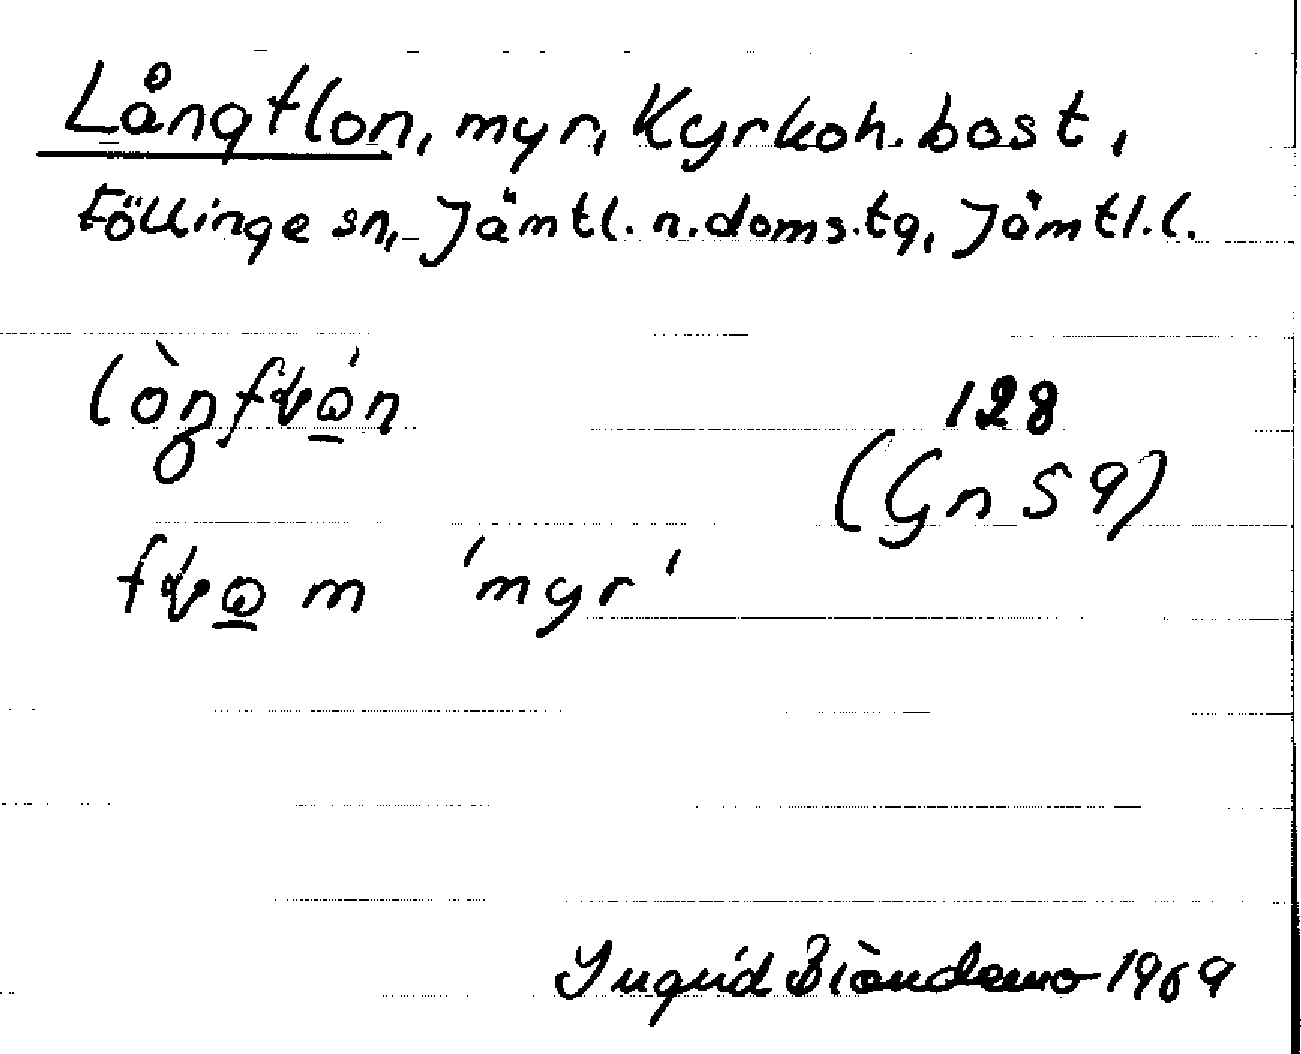 Långflon, myr, Kyrkoh. bost.,
Föllinge sn, Jämtl. n. doms.tg, Jämtl. l.
128
(Gn 59)
m 'myr'
Ingrid 1969